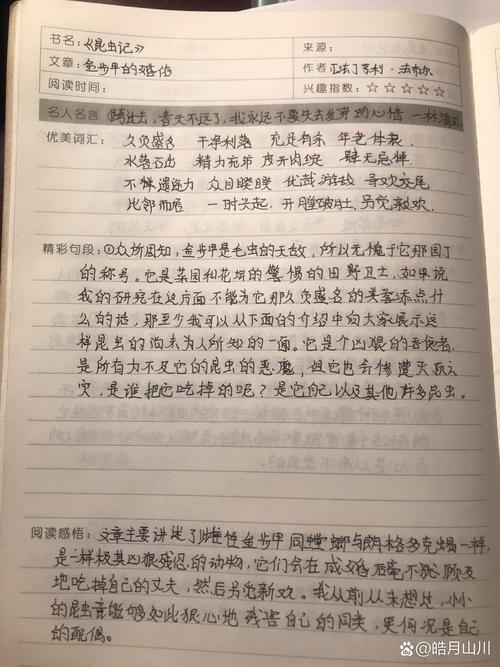 书名：《昆虫记》 来源：
文章：金步甲的婚俗 作者 [法]亨利·法布尔
阅读时间： 兴趣指数：☆☆☆☆☆
名人名言 跨过去，春天不远了，我永远不要失去发芽的心情 —林清玄
优美词汇： 久负盛名 干净利落 充足有余 年老体衰
水落石出 精力充沛 皮开肉绽 肆无忌惮
不惜遗余力 众目睽睽 优哉游哉 寻欢交尾
比邻而居 一时兴起 开膛破肚 另觅新欢
精彩句段：①众所周知，金步甲是毛虫的天敌，所以无愧于它那园丁
的称号。它是菜园和花坛的警惕的田野卫士，如果说
我的研究在这方面不能为它那久负盛名的美誉添点什
么的话，那至少我可以从下面的介绍中向大家展示这
样昆虫的尚未为人所知的一面。它是个凶狠的吞食者，
是所有力不及它的昆虫的恶魔，但它也会惨遭灭顶之
灾，是谁把它吃掉的呢？是它自己以及其他许多昆虫。
阅读感悟：文章主要讲述了雌性金步甲同螳螂与朗格多克蝎一样，
是一样极其凶狠残忍的动物，它们会在成婚后毫不犹豫
地吃掉自己的丈夫，然后另觅新欢。我从前从未想过，小小
的昆虫竟能够如此狠心地残害自己的同类，更何况是自己
的配偶。
Bai度百科 @皓月山川